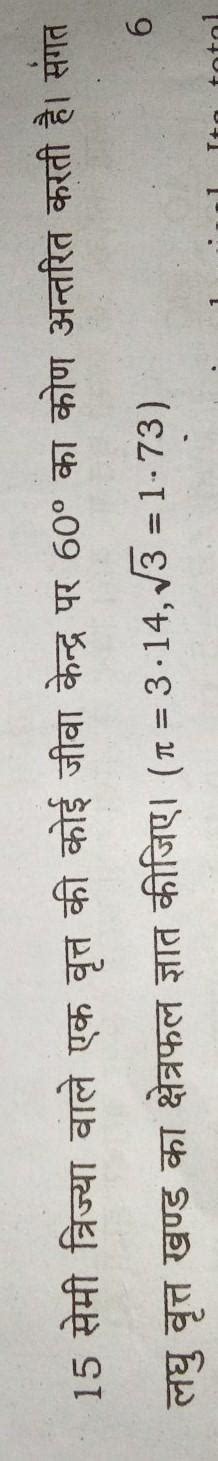 15 सेमी त्रिज्या वाले एक वृत्त की कोई जीवा केन्द्र पर 60° का कोण अन्तरित करती है। संगत
लघु वृत्त खण्ड का क्षेत्रफल ज्ञात कीजिए। (π = 3·14, √3 = 1·73) 6